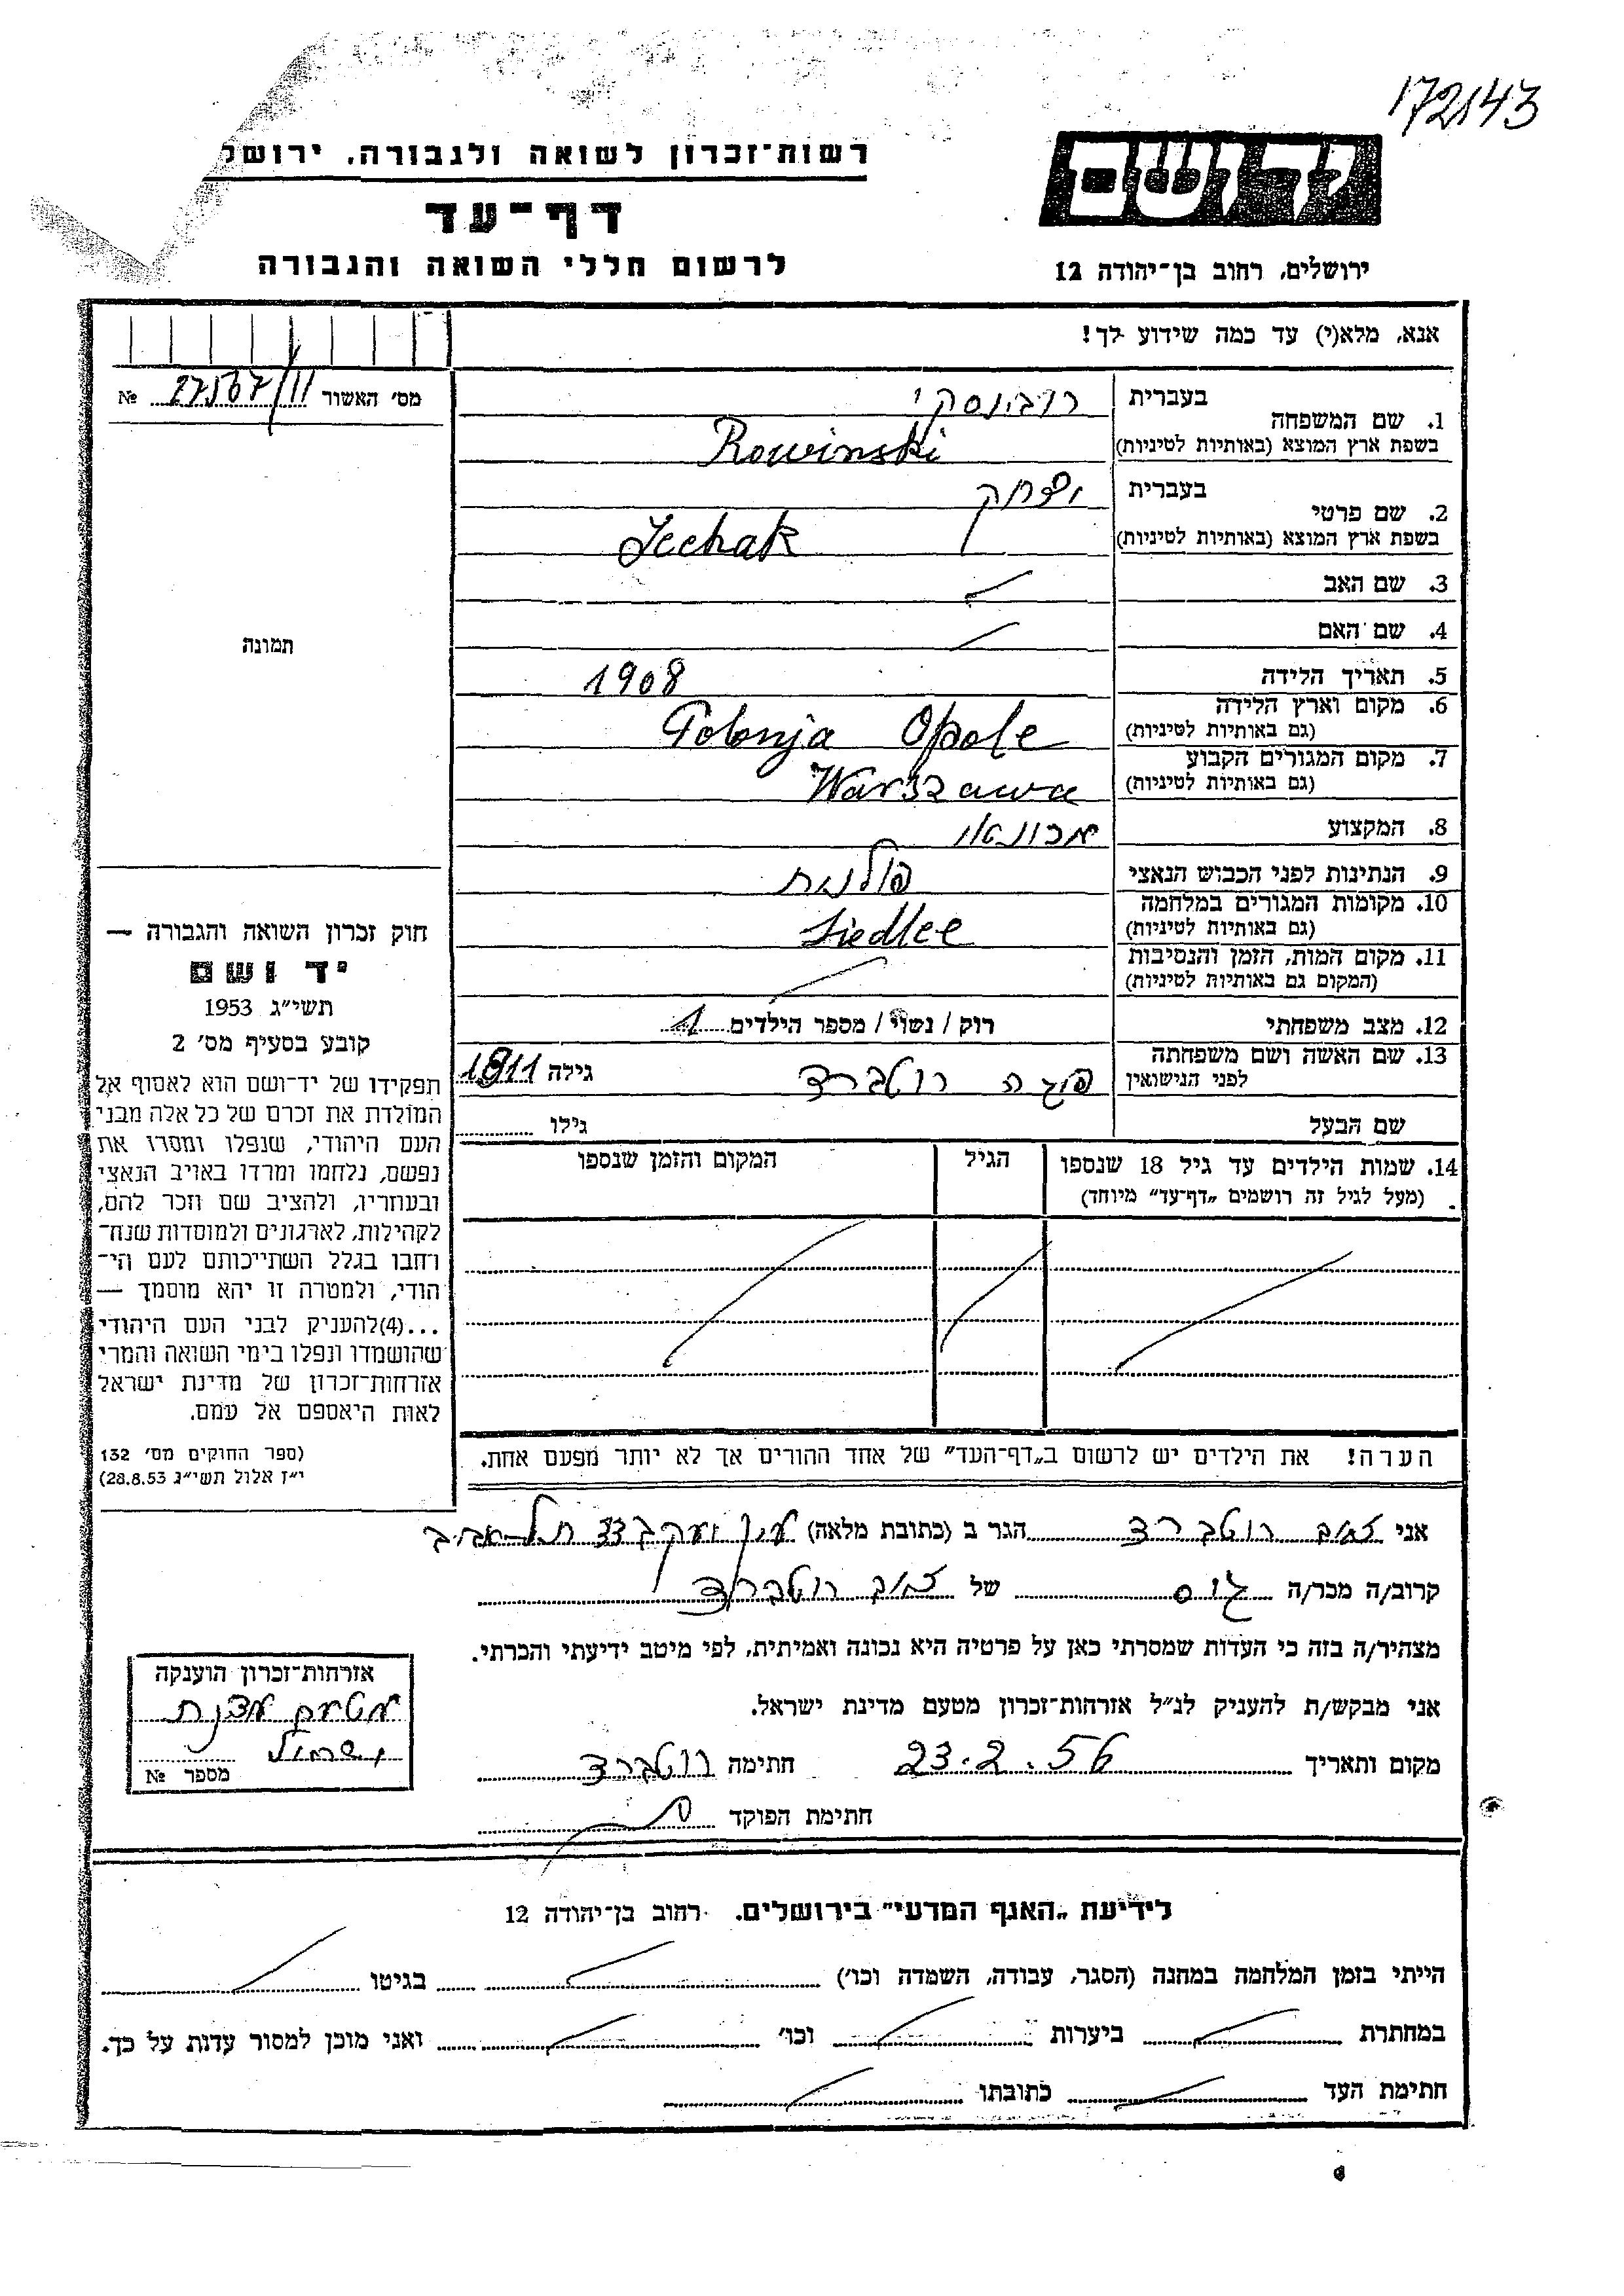 172143
יד ושם
רשות־זכרון לשואה ולגבורה, ירושל
דף־עד
לרשום חללי השואה והגבורה
ירושלים, רחוב בן־יהודה 12
אנא, מלא(י) עד כמה שידוע לך!
מס׳ האשור 27567/11 №
תמונה
1. שם המשפחה
בעברית רובינסקי
בשפת ארץ המוצא (באותיות לטיניות) Rowinski
2. שם פרטי
בעברית יצחק
בשפת ארץ המוצא (באותיות לטיניות) Icchak
3. שם האב
4. שם האם
5. תאריך הלידה 1908
6. מקום וארץ הלידה
(גם באותיות לטיניות) Polonja Opole
7. מקום המגורים הקבוע
(גם באותיות לטיניות) Warszawa
8. המקצוע מכונאי
9. הנתינות לפני הכבוש הנאצי פולנית
10. מקומות המגורים במלחמה
(גם באותיות לטיניות) Siedlce
11. מקום המות, הזמן והנסיבות
(המקום גם באותיות לטיניות)
12. מצב משפחתי רוק / נשוי / מספר הילדים 1
13. שם האשה ושם משפחתה
לפני הנישואין רוטברד גילה 1911
שם הבעל גילו
14. שמות הילדים עד גיל 18 שנספו הגיל המקום והזמן שנספו
(מעל לגיל זה רושמים „דף־עד” מיוחד)
הערה! את הילדים יש לרשום ב„דף־העד” של אחד ההורים אך לא יותר מפעם אחת.
חוק זכרון השואה והגבורה —
יד ושם
תשי״ג 1953
קובע בסעיף מס׳ 2
תפקידו של יד־ושם הוא לאסוף אל
המולדת את זכרם של כל אלה מבני
העם היהודי, שנפלו ומסרו את
נפשם, נלחמו ומרדו באויב הנאצי
ובעוזריו, ולהציב שם וזכר להם,
לקהילות, לארגונים ולמוסדות שנח־
רחבו בגלל השתייכותם לעם הי־
הודי, ולמטרה זו יהא מוסמך —
...(4)להעניק לבני העם היהודי
שהושמדו ונפלו בימי השואה והמרי
אזרחות־זכרון של מדינת ישראל
לאות היאספם אל עמם.
(ספר החוקים מס׳ 132
י״ז אלול תשי״ג 28.8.53)
אני זאב רוטברד הגר ב (כתובת מלאה) עין יעקב תל־אביב
קרוב/ה מכר/ה גיס של זאב רוטברד
מצהיר/ה בזה כי העדות שמסרתי כאן על פרטיה היא נכונה ואמיתית, לפי מיטב ידיעתי והכרתי.
אני מבקש/ת להעניק לנ״ל אזרחות־זכרון מטעם מדינת ישראל.
מקום ותאריך 23.2.56 חתימה רוטברד
חתימת הפוקד
אזרחות־זכרון הוענקה
מטעם מדינת
ישראל
מספר №
לידיעת „האגף המדעי” בירושלים. רחוב בן־יהודה 12
הייתי בזמן המלחמה במחנה (הסגר, עבודה, השמדה וכו׳) בגיטו
במחתרת ביערות וכו׳ ואני מוכן למסור עדות על כך.
חתימת העד כתובתו